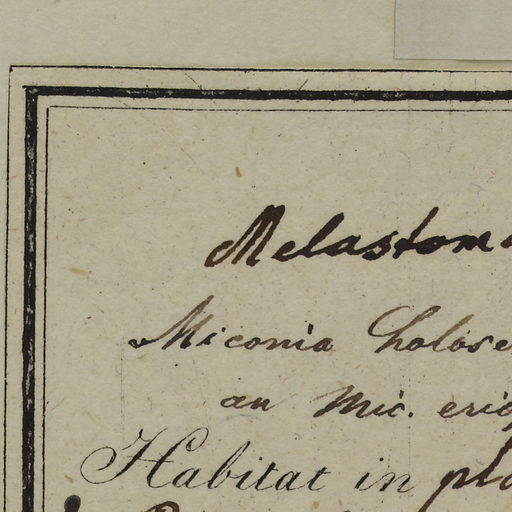 Melastoma
Miconia holose
an Mic. erio
Habitat in pla